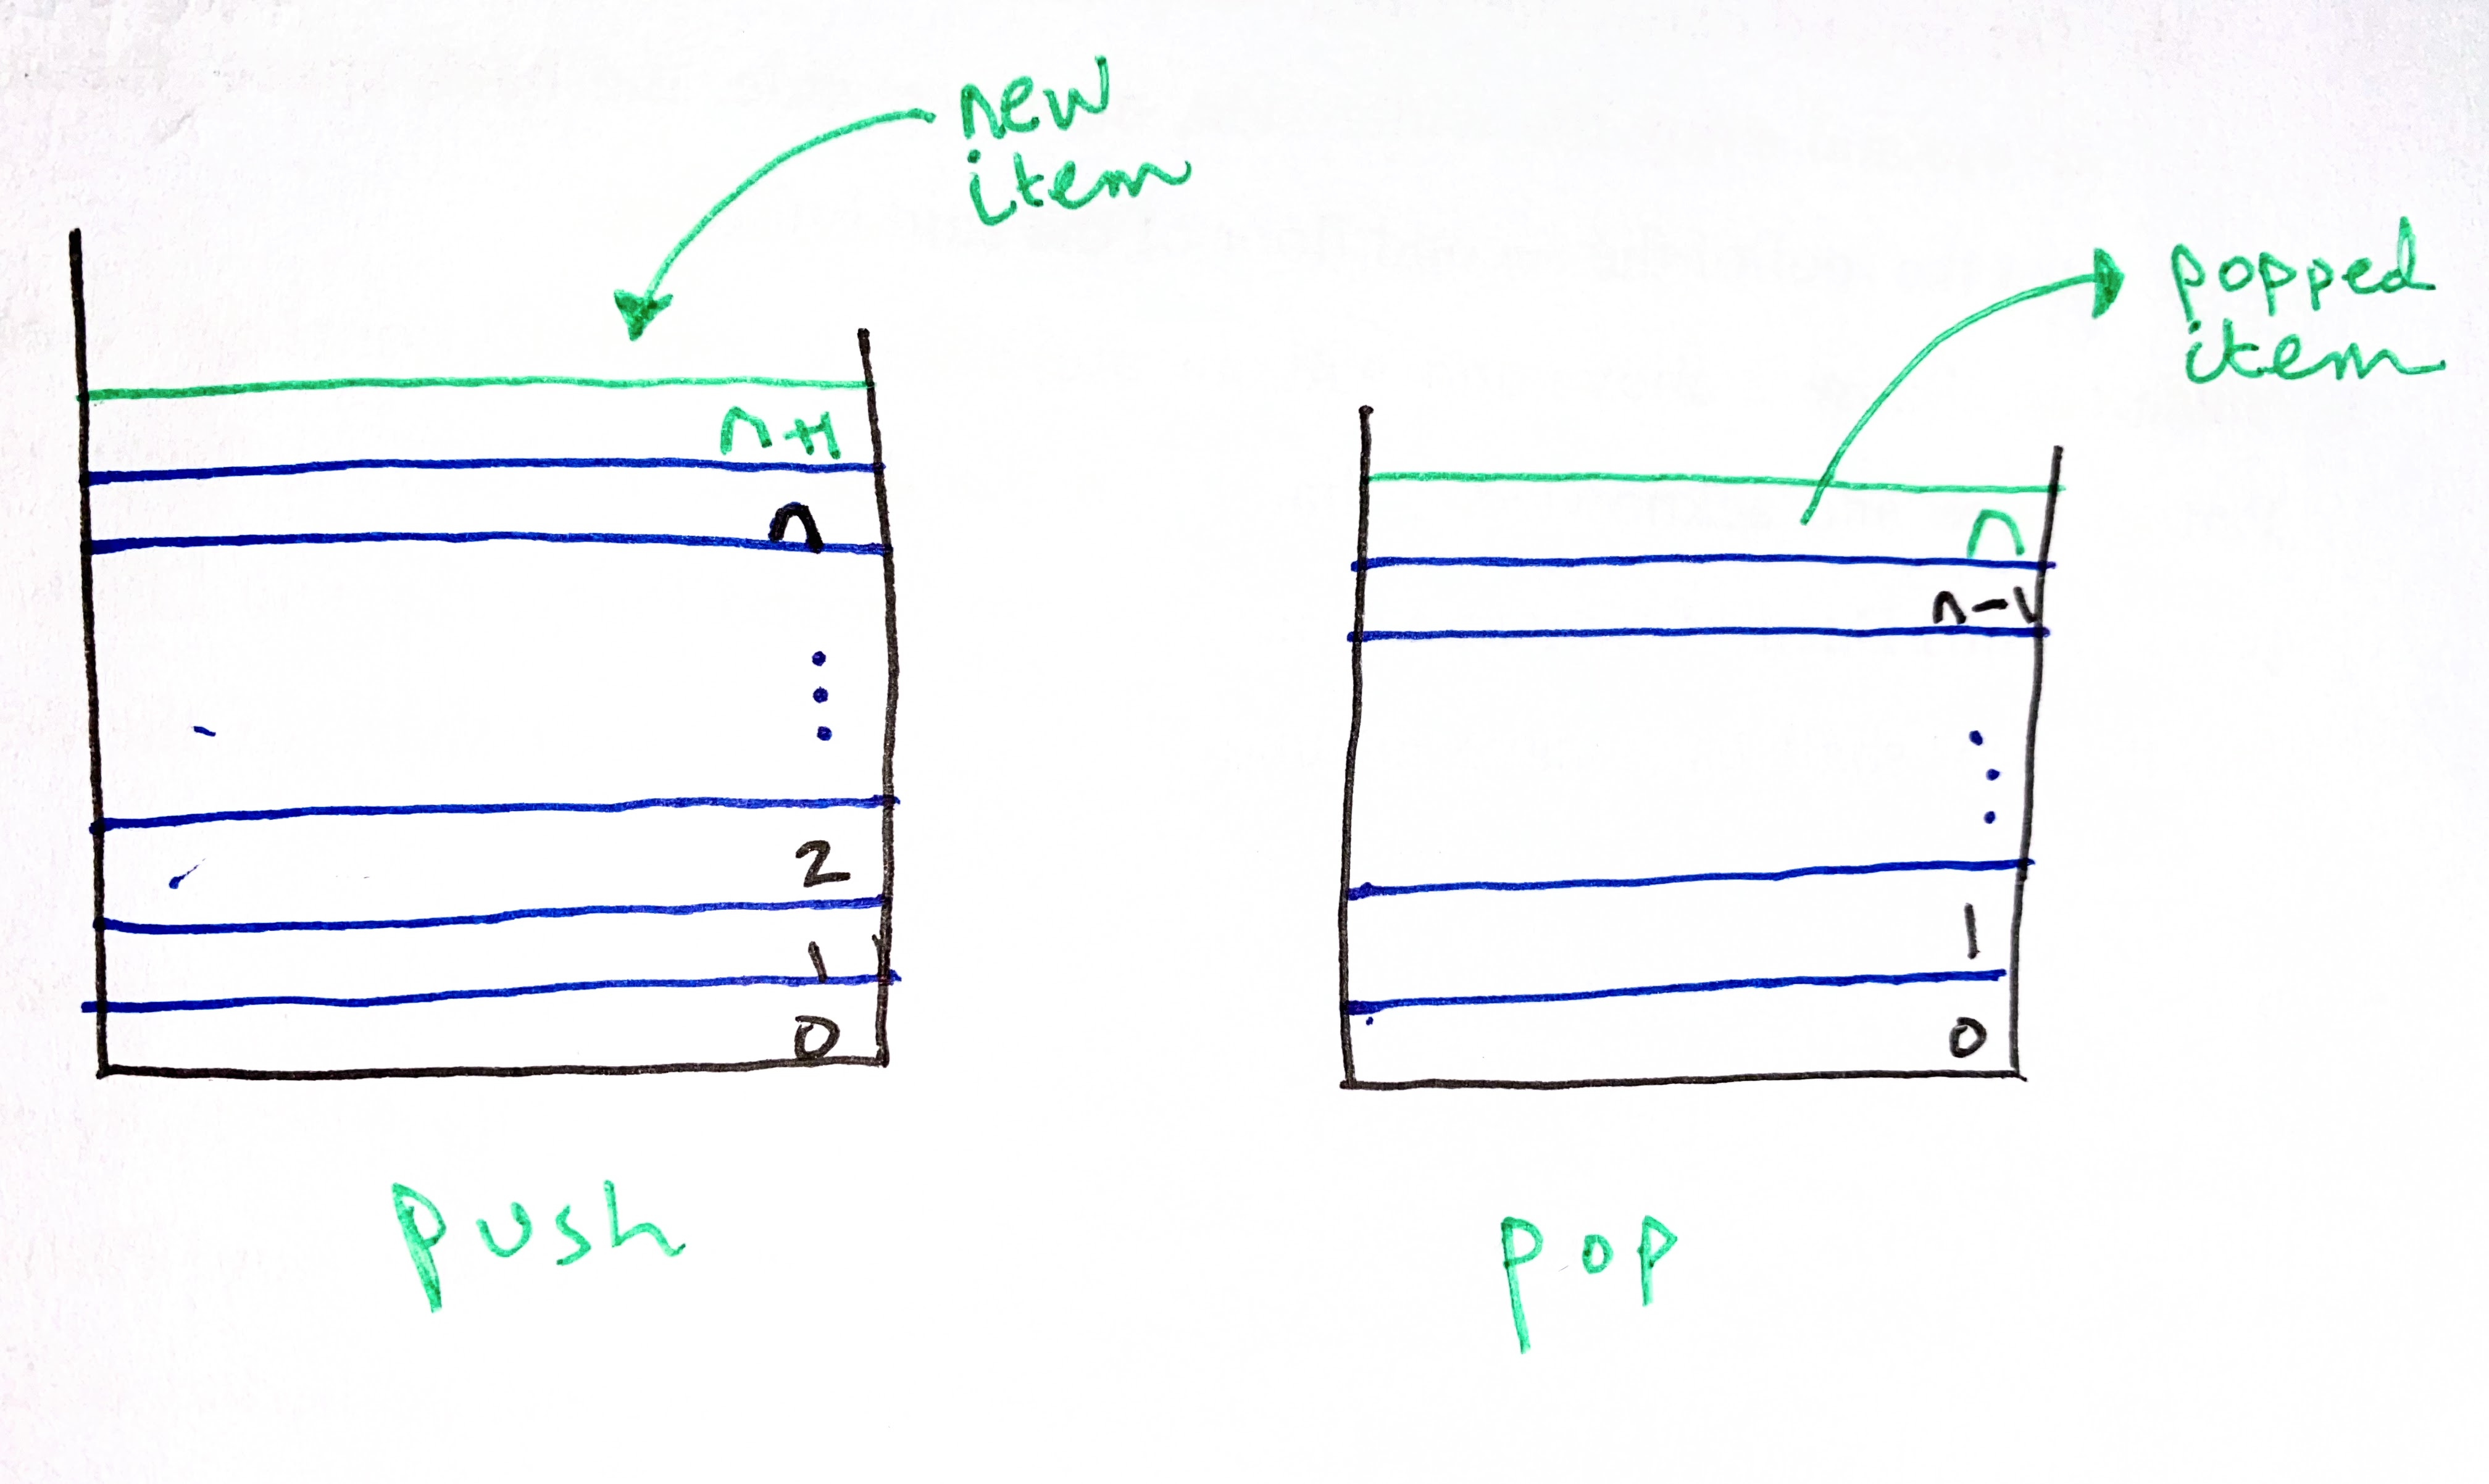 new
item
n+1
n
2
1
0
push
popped
item
n
n-1
1
0
pop